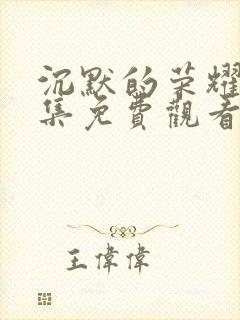 沉默的荣耀
集免費觀看
王偉偉